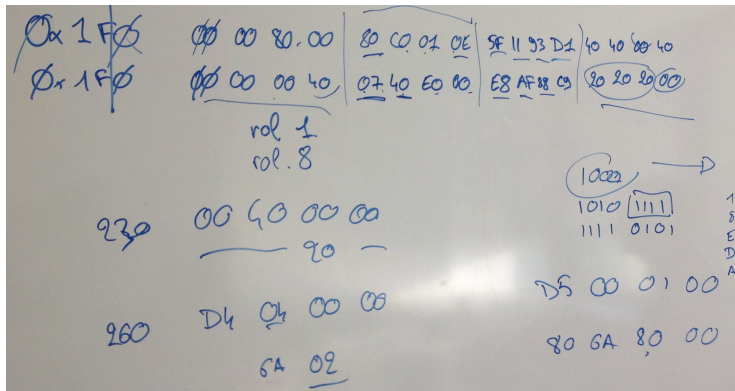 0x1F0 00 00 80.00 80 C0 01 0E 5F 11 93 D1 40 40 80 40
0x1F0 00 00 00 40 07 40 E0 00 E8 AF 88 C9 20 20 20 00
rol 1
rol.8
1000 D
1010 1111
1111 0101
230 00 40 00 00
20
D5 00 01 00
260 D4 04 00 00
80 6A 80 00
6A 02
1
8
E
D
A